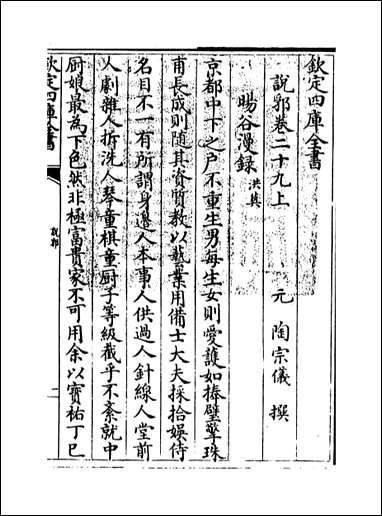 欽定四庫全書
說郛卷二十九上
元 陶宗儀 撰
暘谷漫錄 洪巽
京都中下之户不重生男每生女則愛護如捧璧擎珠
甫長成則隨其資質教以藝業用備士大夫採拾娛侍
名目不一有所謂身邊人本事人供過人針線人堂前
人劇雜人拆洗人琴童棋童厨子等級截乎不紊就中
厨娘最為下色然非極富貴家不可用余以寶祐丁巳
欽定四庫全書
說郛